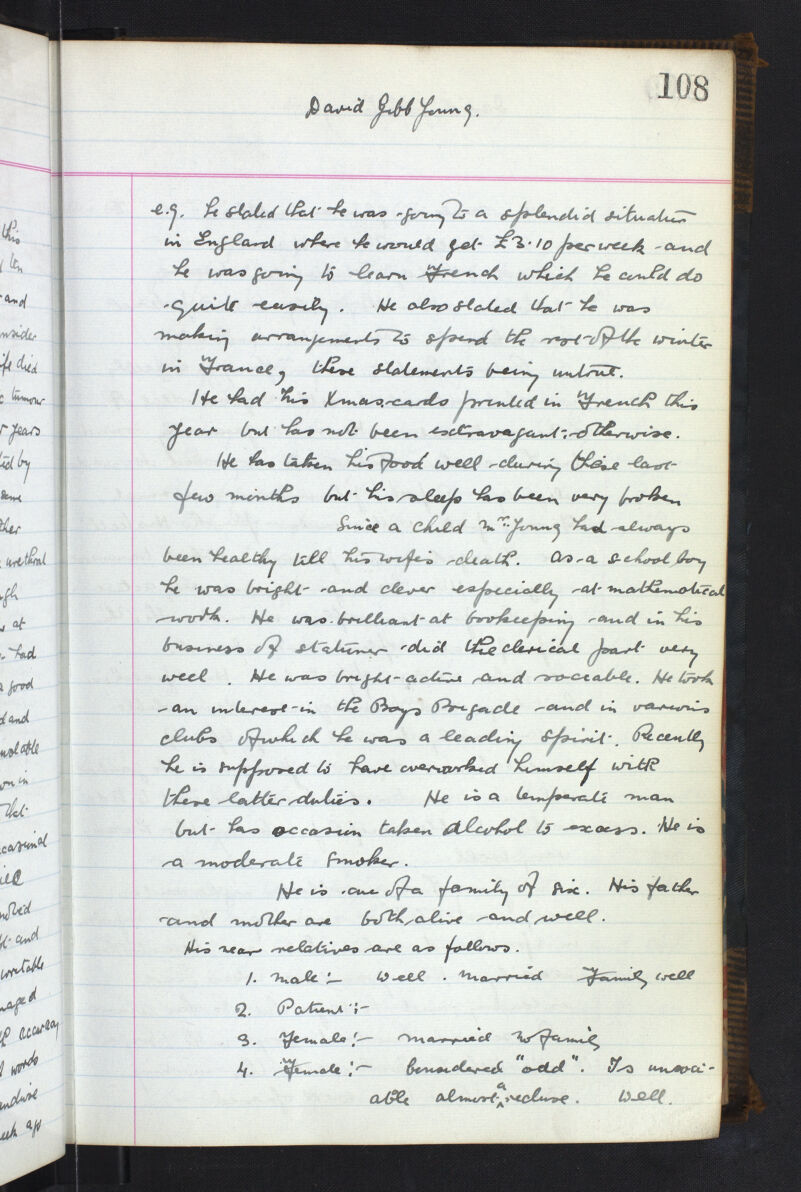 108
David Gibb Young.
e.g. he stated that he was going to a splendid situation
in England where he would get £3.10 per week and
he was going to learn French which he could do
quite easily. He also stated that he was
making arrangements to spend the rest of the winter
in France, these statements being untrue.
He had his Xmas cards printed in French this
year but has not been extravagant otherwise.
He has taken his food well during these last
few months but his sleep has been very broken
Since a child Mr. Young had always
been healthy till his wifes death. As a school boy
he was bright and clever especially at mathematical
work. He was brilliant at bookeeping and in his
business of stationer did the clerical part very
well. He was bright active and sociable. He took
an interest in the Boys Brigade and in various
clubs of which he was a leading spirit. Recently
he is supposed to have overworked himself with
these latter duties. He is a temperate man
but has occasion taken alcohol to excess. He is
a moderate smoker.
He is one of a family of six. His father
and mother are both alive and well.
His near relatives are as follows.
1. Male:- Well. Married Family well
2. Patient:-
3. Female:- married no family
4. Female:- Considered "odd". Is unsoci-
able almost a recluse. Well.
this
ten
and
ife died
tumour
years
ted by
same
ther
urethral
at
had
a good
d and
on in
that
casional
and
irritable
naged
accuracy
words
eek ago